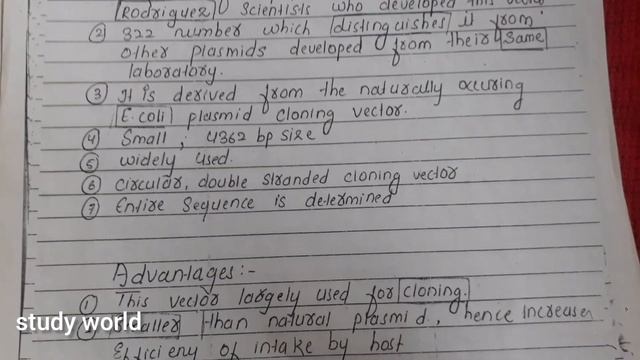 Rodriguez) Scientists who developed this vector
② 322 number which distinguishes it from
other plasmids developed from their Same
laboratory.
③ It is derived from the naturally occuring
E. coli plasmid cloning vector.
④ Small ; 4362 bp size
⑤ widely used.
⑥ circular, double stranded cloning vector
⑦ Entire Sequence is determined
Advantages :-
① This vector largely used for cloning.
② Smaller than natural plasmid, hence increases
Efficiency of intake by host
study world